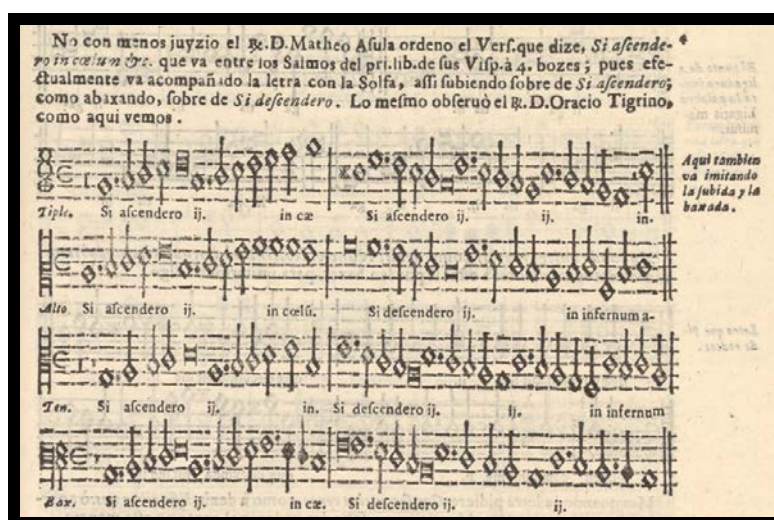 No con menos juyzio el ℞.D.Matheo Asula ordeno el Vers.que dize, Si ascende-
ro in cœlum &c. que va entre los Salmos del pri.lib.de sus Visp.à 4. bozes; pues efe-
ctualmente va acompañado la letra con la Solfa, assi subiendo sobre de Si ascendero;
como abaxando, sobre de Si descendero. Lo mesmo obseruò el ℞.D.Oracio Tigrino,
como aqui vemos.
Aqui tambien
va imitando
la subida y la
baxada.
Tiple. Si ascendero ij. in cæ Si ascendero ij. ij. in.
Alto Si ascendero ij. in cœlū. Si descendero ij. in infernum a-
Ten. Si ascendero ij. in. Si descendero ij. ij. in infernum
Bax. Si ascendero ij. in cæ. Si descendero ij. ij.